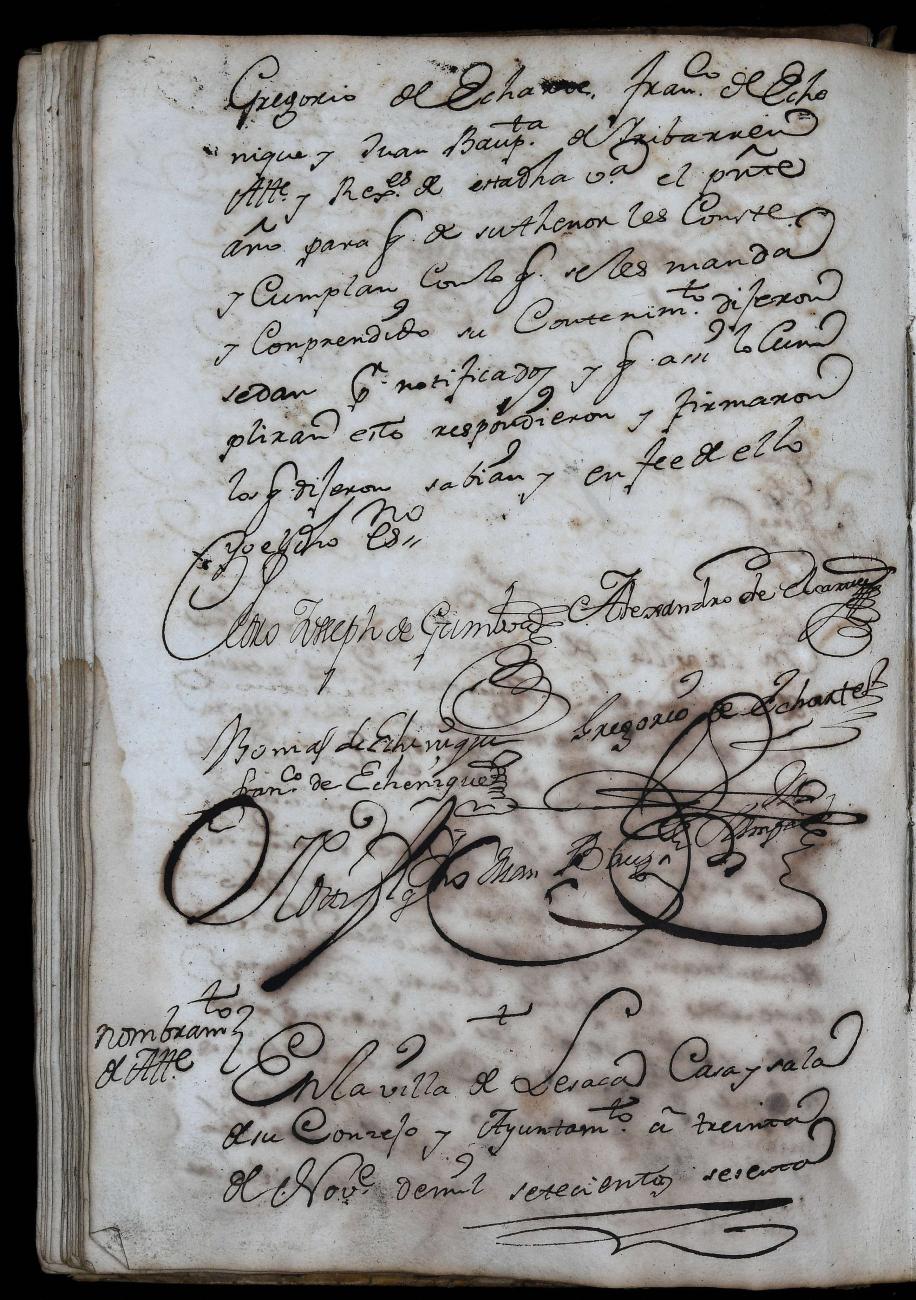 Gregorio de Echarte, Fran.co de Eche
nique y Juan Baup.ta de Iribarren
Att.e y Rex.es de estadha v.a el prñte
año para q. de suthenor les Conste
y Cumplan Conlo q. seles manda
y Comprendido su Contenim.to dijeron
sedan p.r notificados y q. assi lo Cum
pliran esto respondieron y firmaron
los q. dijeron sabian y enfee de ello
yo el dho es.no
Pedro Joseph de Gamboa Alexandro de
Gregorio de Echarte
Tomas de Echenique
fran.co de Echenique
Juan Baup.ta
nombram.to
de Att.e
En la villa de Lesaca Casa y sala
desu Conzejo y Ayuntam.to a treinta
de Nov.e demil setecientos sesenta